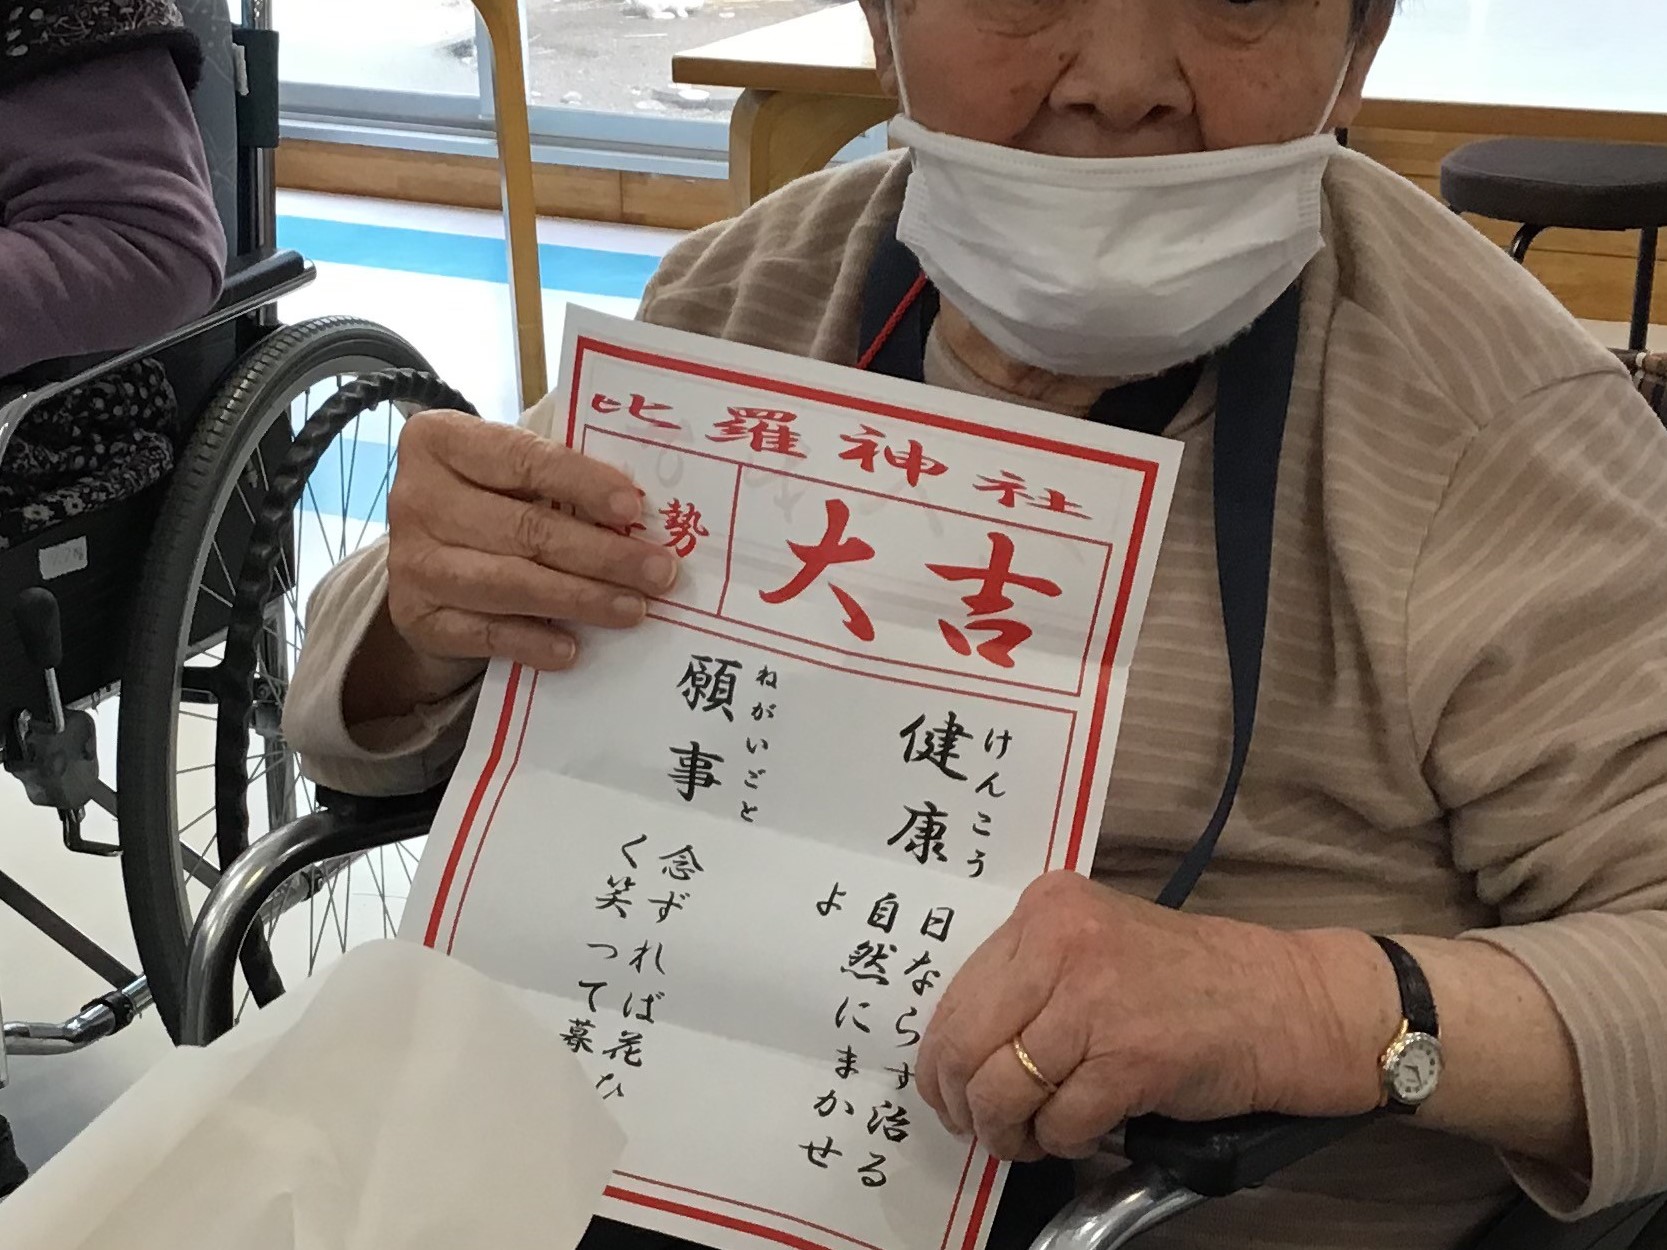 比羅神社
大吉
勢
健康
けんこう
日ならず治る
自然にまかせ
よ
願事
ねがいごと
念ずれば花ひ
く笑って暮